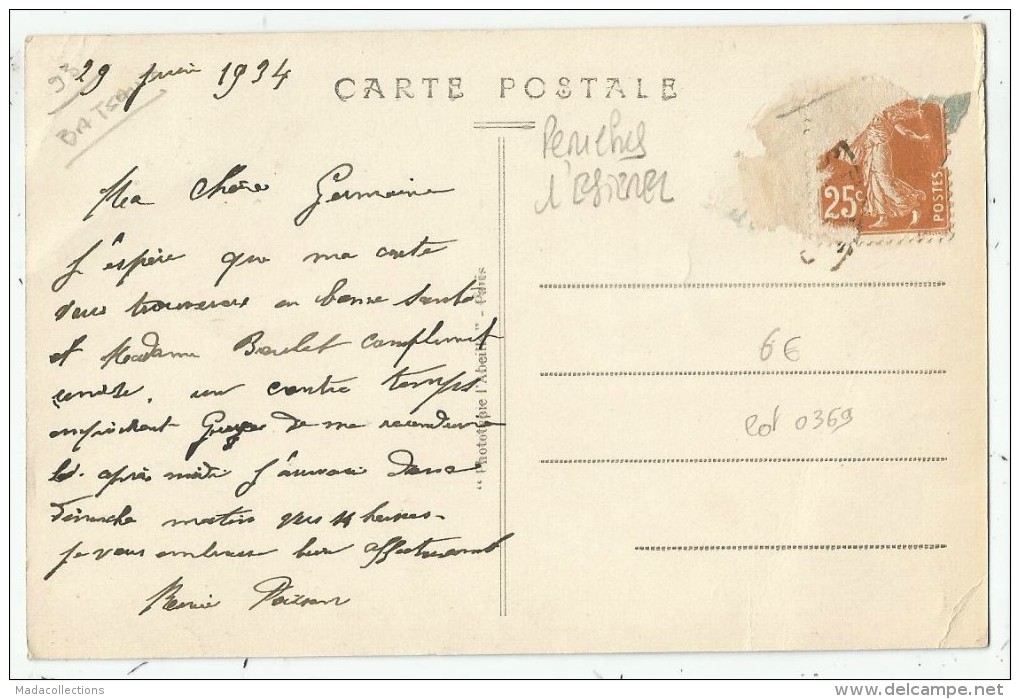 29 juin 1934
CARTE POSTALE
BATEAU
Péniches
Ma Chère Germaine
J'espère que ma carte
vous trouvera en bonne santé
et Madame complément
remise, un contre temps
empêchant de me
après midi J'arriverai dans
dimanche matin vers 11 heures.
je vous embrasse bien affectueusement
Renée Poisson
"Phototypie l'Abeille" - Paris
25c
POSTES
6€
lot 0369
Madacollections
www.delcampe.net